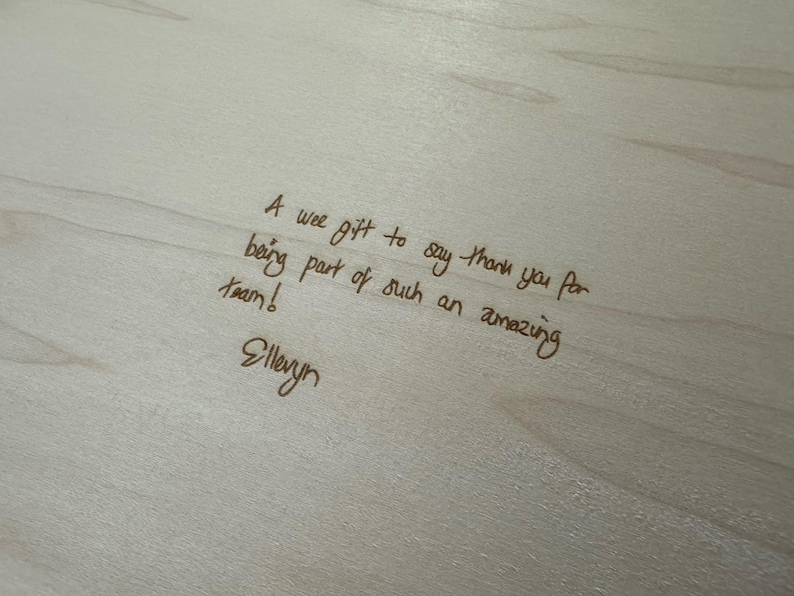 A wee gift to say thank you for
being part of such an amazing
team!
Ellevyn